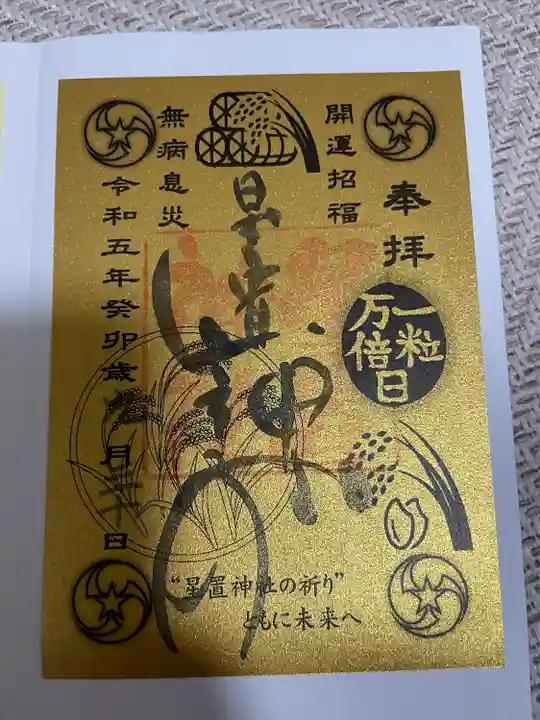 奉拝
一粒
万倍日
開運招福
星置神社
無病息災
令和五年癸卯歳 月二十日
“星置神社の祈り”
ともに未来へ